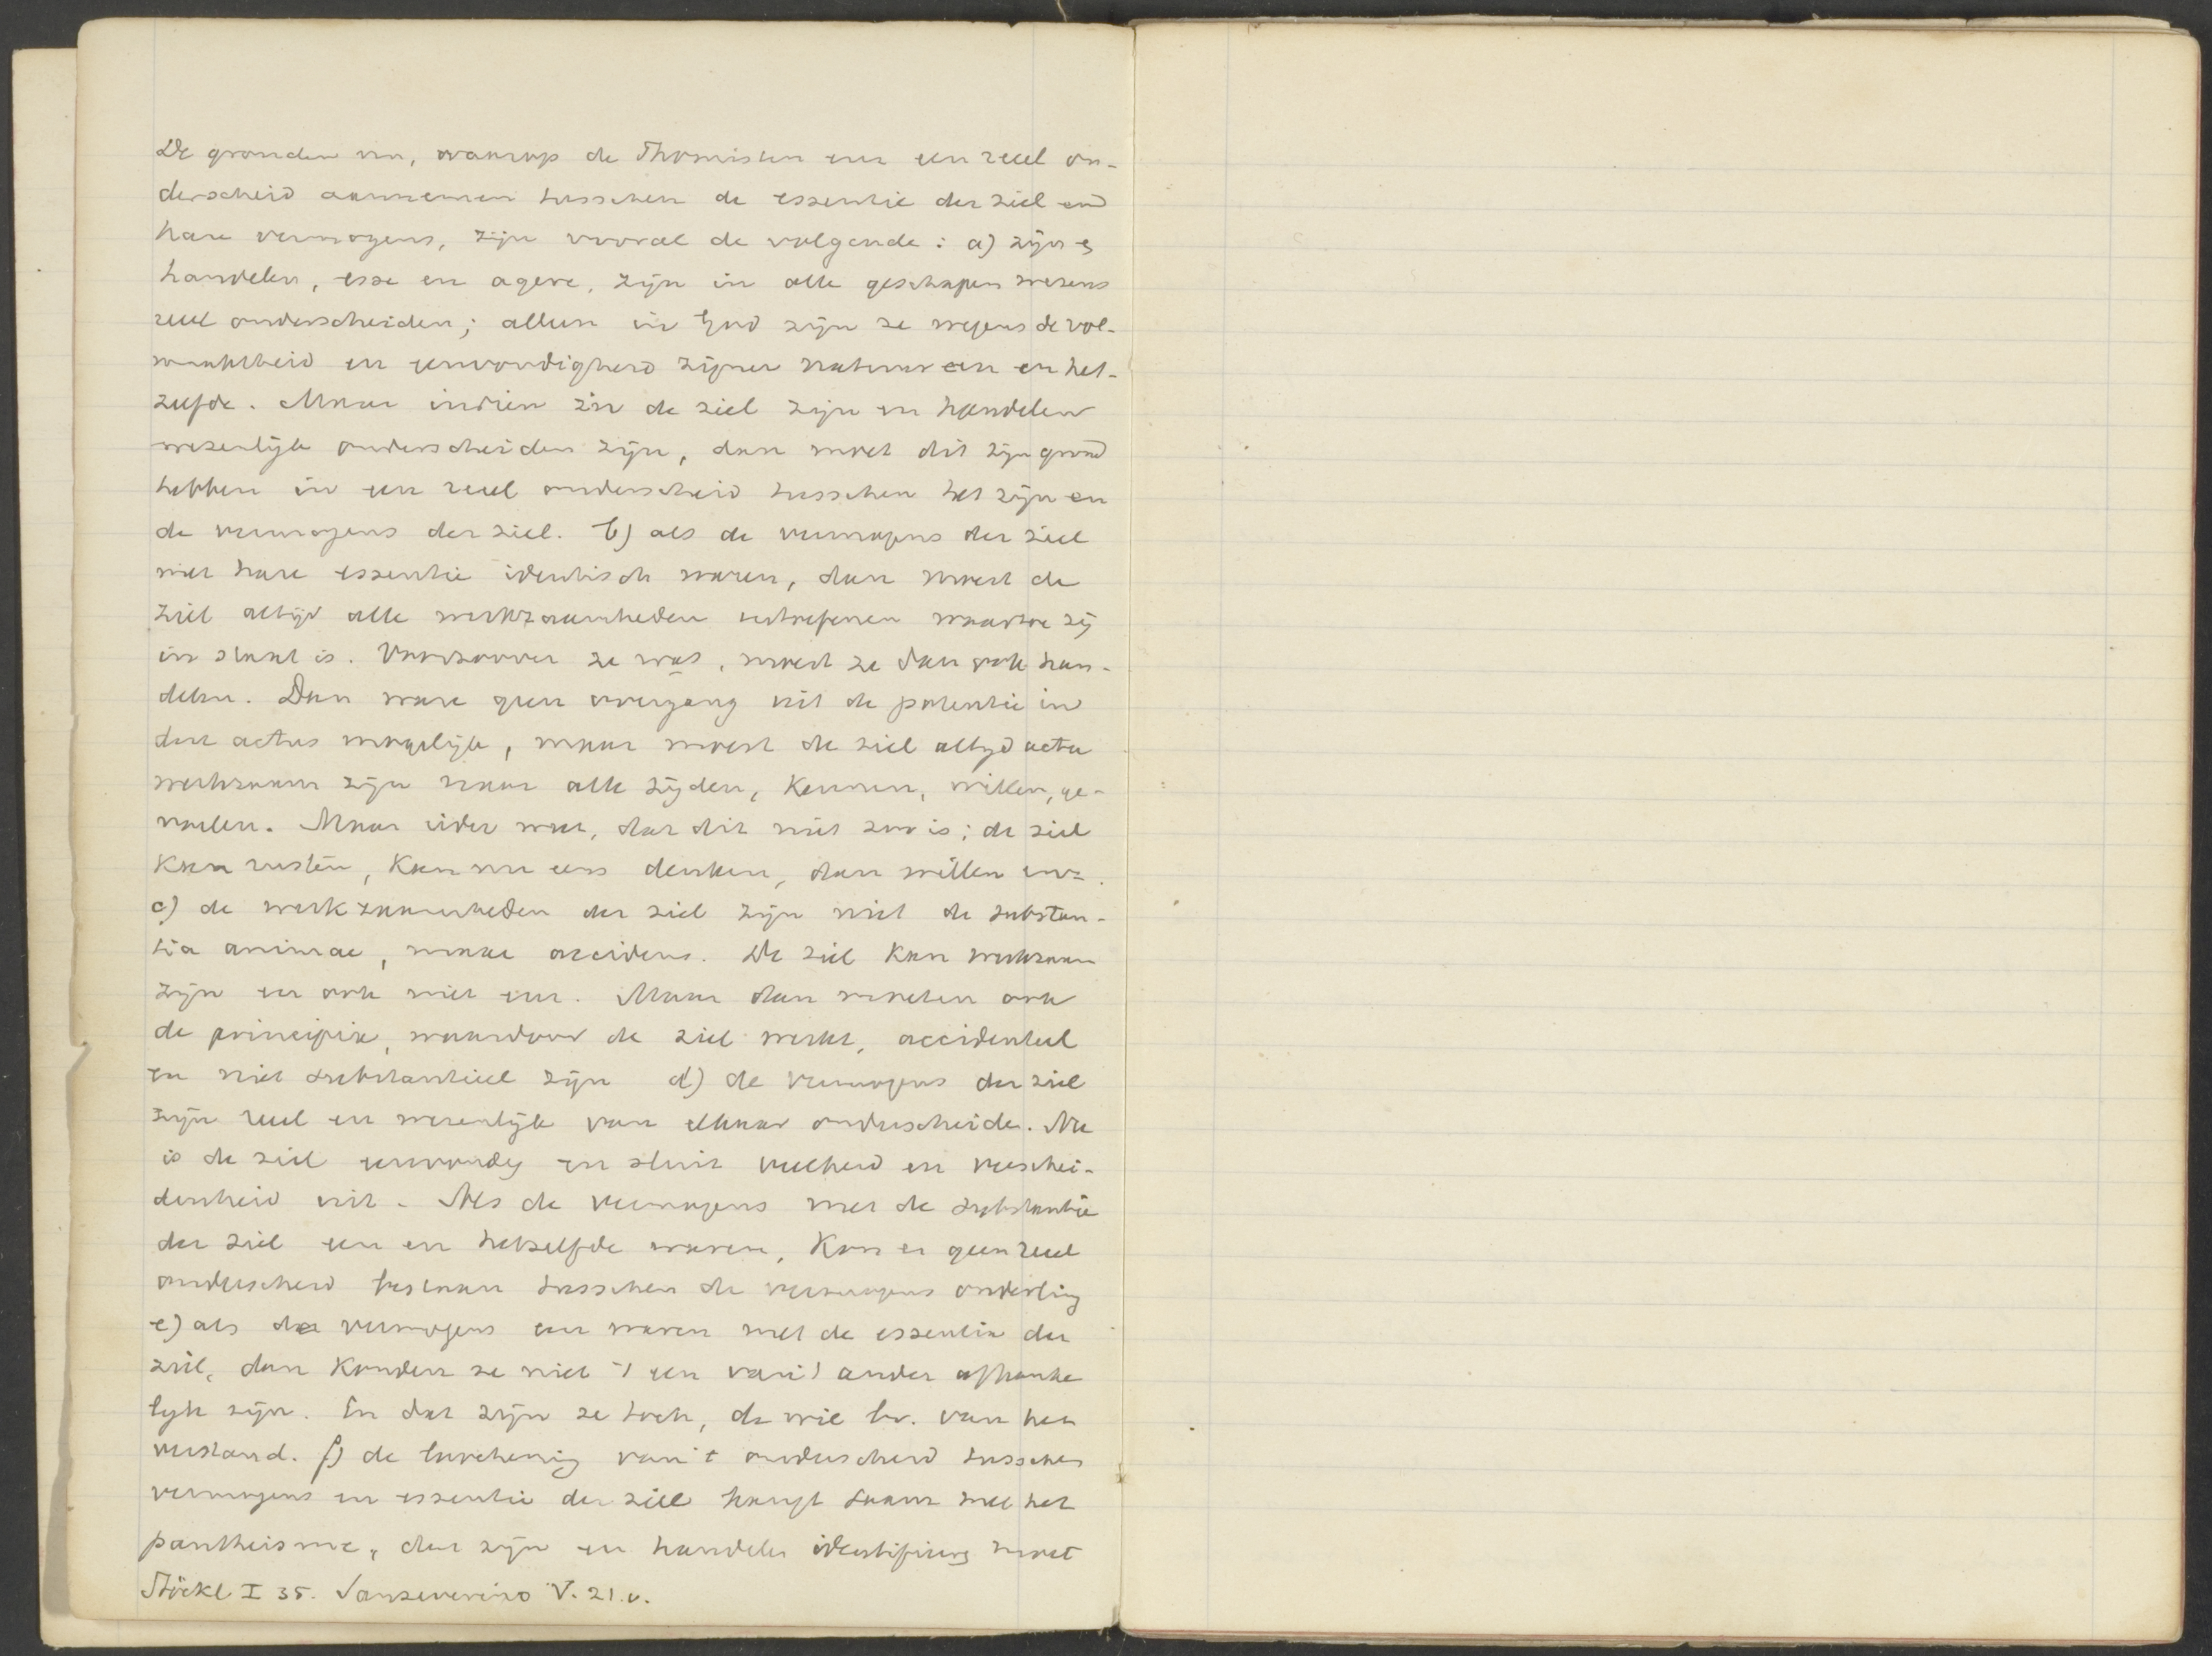 De gronden nu, waarop de Thomisten een reeel on-
derscheid aannemen tusschen de essentie der ziel en
hare vermogens, zijn vooral de volgende: a) zijn en
handelen, esse en agere, zijn in alle geschapen wezens
reeel onderscheiden; alleen in God zijn ze wegens de vol-
maaktheid en eenvoudigheid zijner natuur een en het-
zelfde. Maar indien in de ziel zijn en handelen
wezenlijk onderscheiden zijn, dan moet dit zijn grond
hebben in een reeel onderscheid tusschen het zijn en
de vermogens der ziel. b) als de vermogens der ziel
met hare essentie identisch waren, dan moest de
ziel altijd alle werkzaamheden uitoefenen waartoe zij
in staat is. Voorzoover ze was, moest ze dan ook han-
delen. Dan ware geen overgang uit de potentie in
den actus mogelijk, maar moest de ziel altijd actu
werkzaam zijn naar alle zijden, kennen, willen, ge-
voelen. Maar ieder weet, dat dit niet zoo is; de ziel
kan rusten, kan nu eens denken, dan willen enz.
c) de werkzaamheden der ziel zijn niet de substan-
tia animae, maar accidens. De ziel kan werkzaam
zijn en ook niet zijn. Maar dan moeten ook
de principia, waardoor de ziel werkt, accidenteel
en niet substantieel zijn d) de vermogens der ziel
zijn reeel en wezenlijk van elkaar onderscheiden. Nu
is de ziel eenvoudig en sluit veelheid en verschei-
denheid uit. Als de vermogens met de substantie
der ziel een en hetzelfde waren, kon er geen reeel
onderscheid bestaan tusschen de vermogens onderling
e) als de vermogens een waren met de essentie der
ziel, dan konden ze niet 't een van 't ander afhanke
lijk zijn. En dat zijn ze toch, de wil bv. van het
verstand. f) de loochening van 't onderscheid tusschen
vermogens en essentie der ziel hangt saam met het
pantheisme, dat zijn en handelen identifieeren moet
Stöckl I 35. Sanseverino V. 21 v.